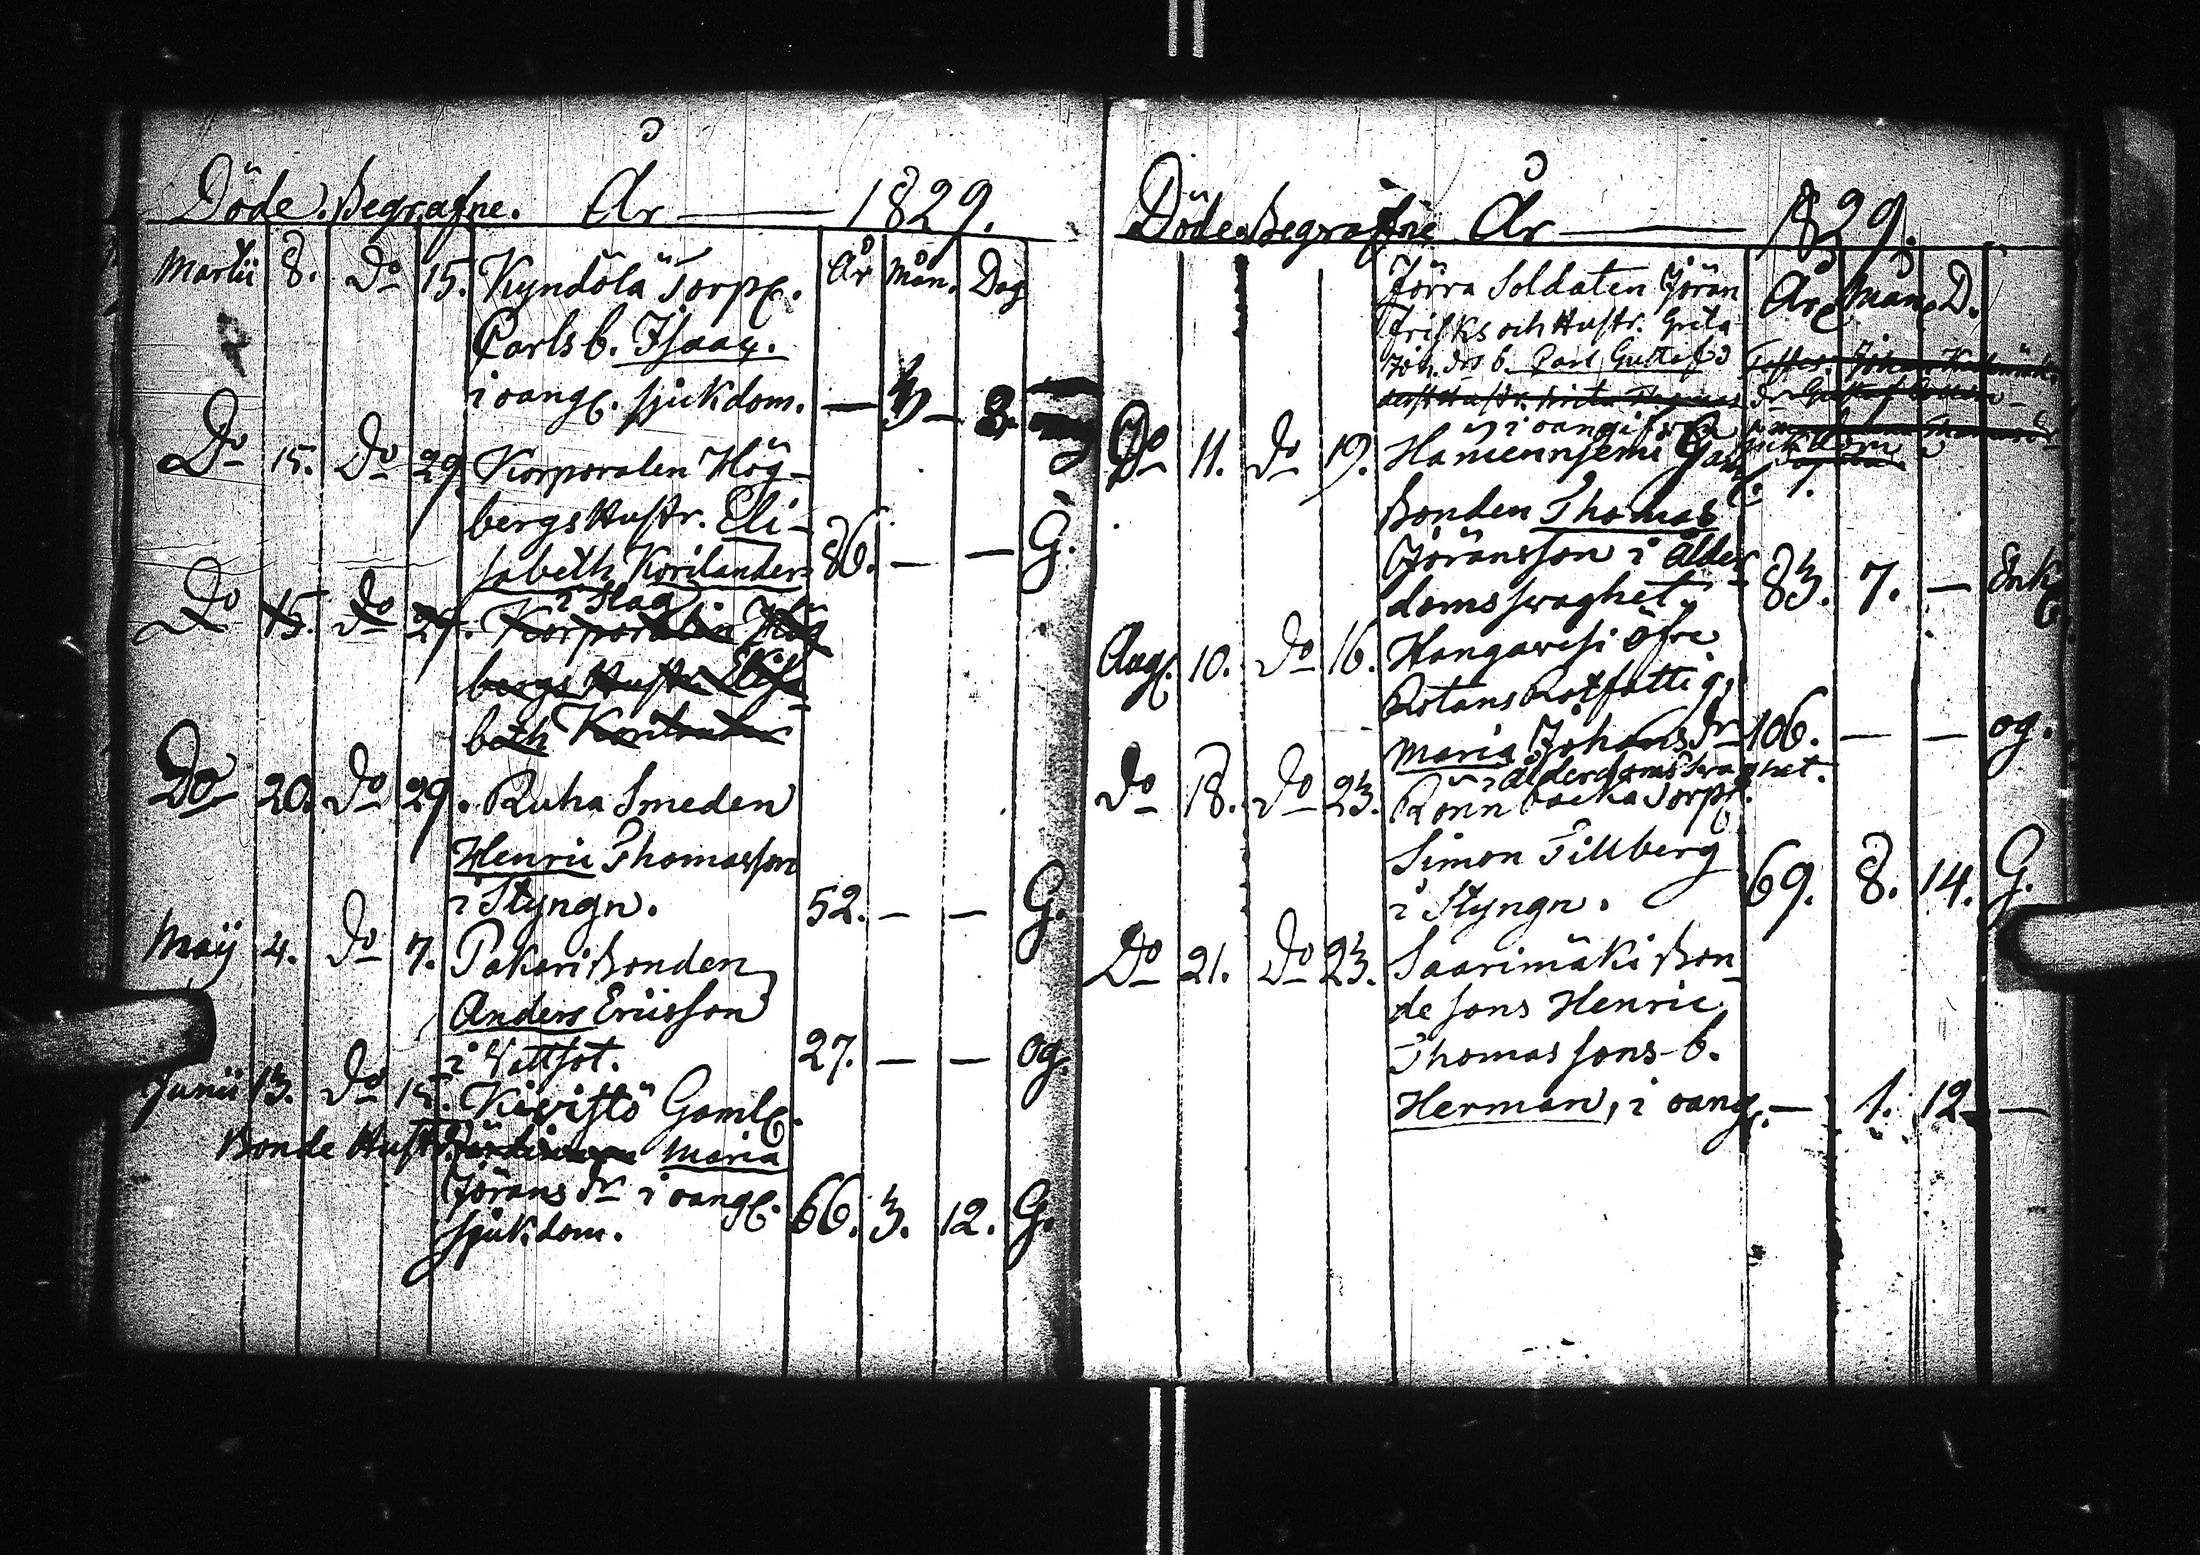 Döde. Begrafne. År — 1829.
Martii 8. Do 15. Kyndölä Torp. År Mån. Dag
Carls b. Isaac.
i oang. sjukdom. — 3 — 3.
Do 15. Do 29. Korporalen Hög-
bergs Hustr. Eli-
sabeth Korilander 86. — — G.
i Slag
Do 15. Do 29. Korporalen Hög
bergs Hustr. Elisa
beth
Do 20. Do 29. Ruha Smeden
Henric Thomasson
i Styngn. 52. — — G.
Maij 4. Do 7. Pakari Bonden
Anders Ericsson
i Vattsot. 27. — — og.
Junii 13. Do 15. Kivistö Gaml.
Bonde Hustr. Maria
Jörans dr i oang.
sjukdom. 66. 3. 12. G.
Döde Begrafne År — 1829.
Förra Soldaten Jöran År Mån. D.
Frisks och Hustr. Greta
Joh. drs b. Carl Gustaf
i oang
sjukdom
Do 11. Do 19. Gaml. 1.
Bonden Thomas
Jöransson i Ålder-
doms swaghet. 83. 7. — Enk
Aug. 10. Do 16. Hangawesi öfre
Rotans Rotfattig,
Maria Johans dr 106. — — og.
i Ålderdoms swaghet.
Do 18. Do 23. Rönnbacka Torp.
Simon Tillberg
i Styngn. 69. 8. 14. G.
Do 21. Do 23. Saarimäki Bon-
de sons Henric
Thomas sons b.
Herman, i oang. — 1. 12. —